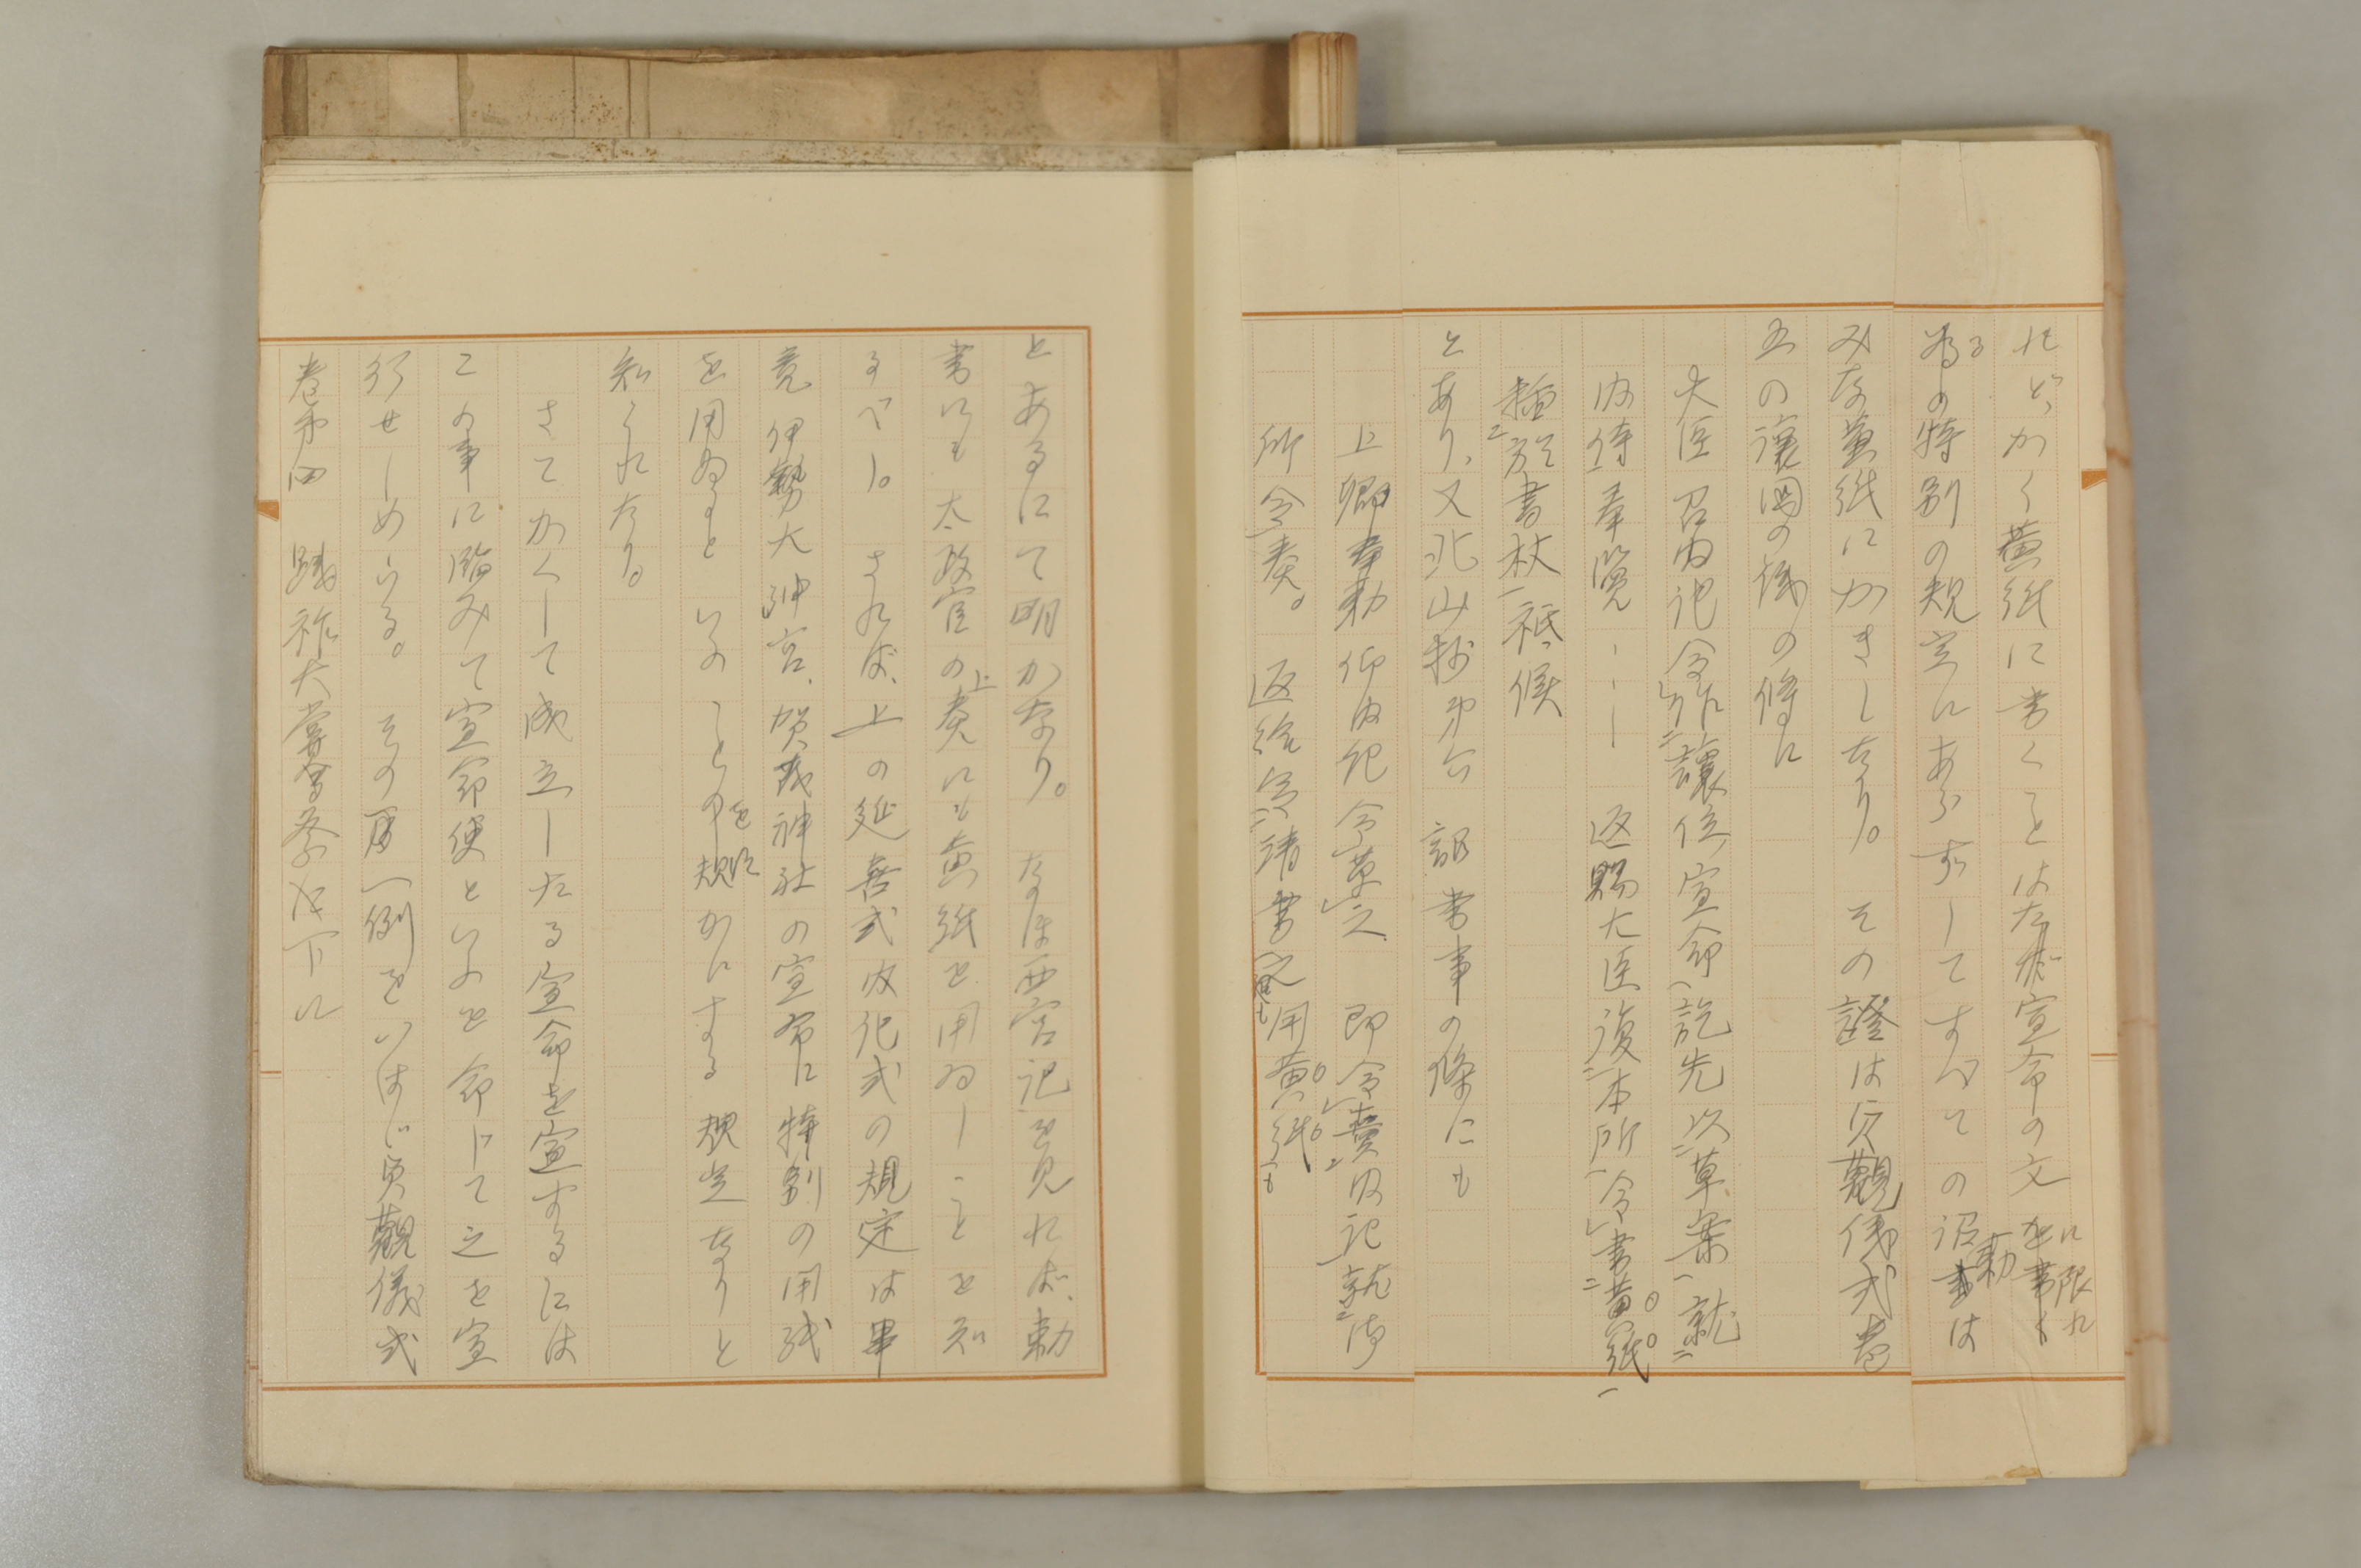 れど、かく黄紙に書くことはたゞ宣命の文に限れ
る特別の規定にあらずしてすべての詔勅は
みな黄紙にかきしなり。その證は貞觀儀式巻
五の讓國の儀の條に
大臣召内記令作讓位宣命訖先以草案就
内侍奉覽――― 返賜大臣復本所令書黄紙
挿於書杖祗候
とあり、又北山抄第六 詔書事の條にも
上卿奉勅仰内記令草之 即令賷内記就御
所令奏。返給令清書用黄紙
とあるにて明かなり。なほ西宮記を見れば、勅
書にも太政官の上奏にも黄紙を用ゐしことを知
るべし。されば、上の延喜式内記式の規定は畢
竟伊勢大神宮、賀茂神社の宣命に特別の用紙
を用ゐるといふことを明かにする規定なりと
知られたり。
さてかくして成立したる宣命を宣するには
この事に臨みて宣命使といふを命じて之を宣
行せしめらる。その一例をいはゞ貞觀儀式
巻第四 踐祚大嘗會祭儀下に